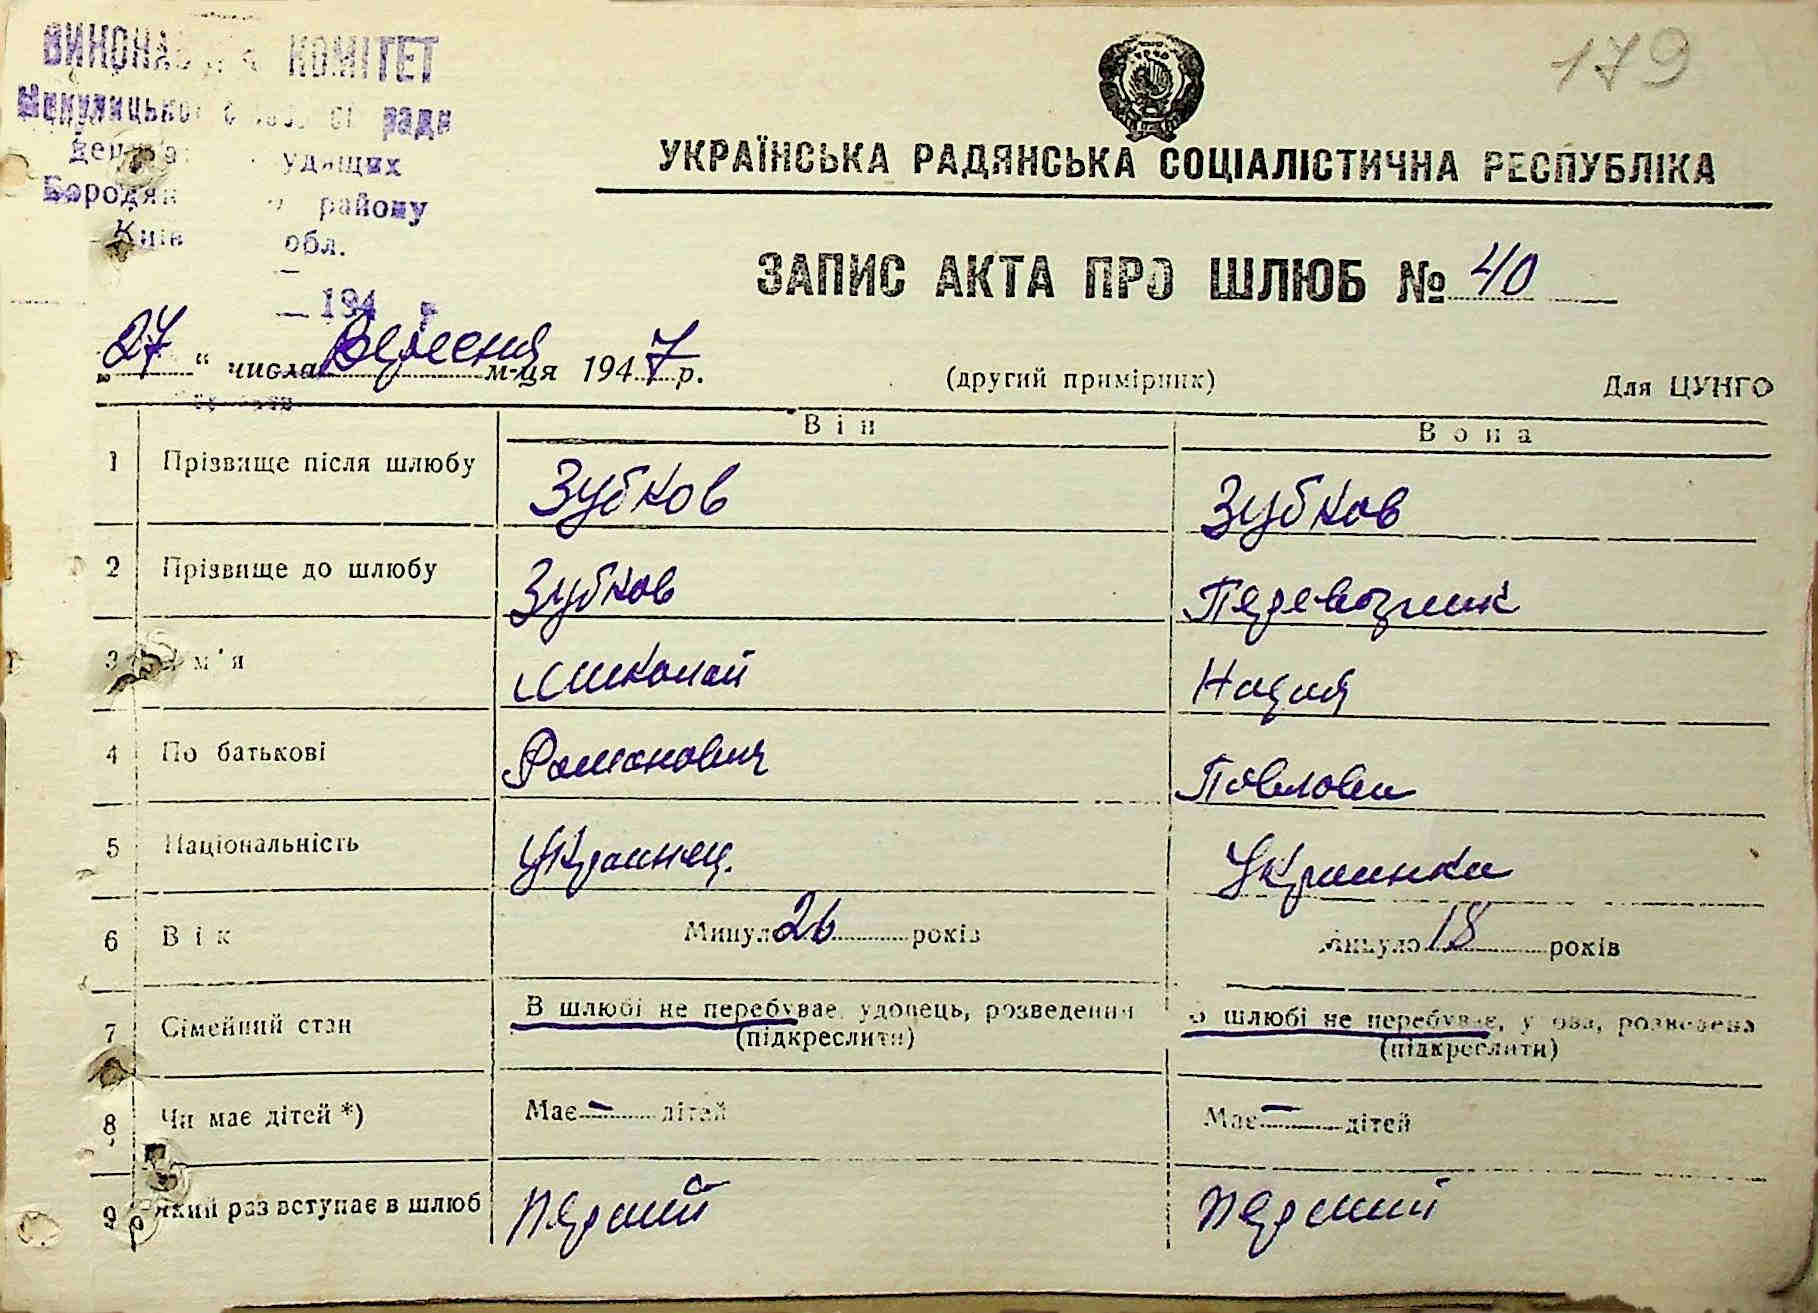 179
КОМІТЕТ
ради
удящих
району
обл.
194 р.
УКРАЇНСЬКА РАДЯНСЬКА СОЦІАЛІСТИЧНА РЕСПУБЛІКА
ЗАПИС АКТА ПРО ШЛЮБ № 40
„27“ числа Вересня м-ця 1947 р.
(другий примірник)
Для ЦУНГО
Він
Вона
1 Прізвище після шлюбу Зубков Зубков
2 Прізвище до шлюбу Зубков Перевозник
3 м'я Миколай Надия
4 По батькові Романович Повловна
5 Національність Украинец. Украинка
6 Вік Минул 26 років Минуло 18 років
7 Сімейний стан В шлюбі не перебуває, удовець, розведений шлюбі не перебуває, розведена
(підкреслити) (підкреслити)
8 Чи має дітей *) Має – дітей Має – дітей
9 Який раз вступає в шлюб перший перший